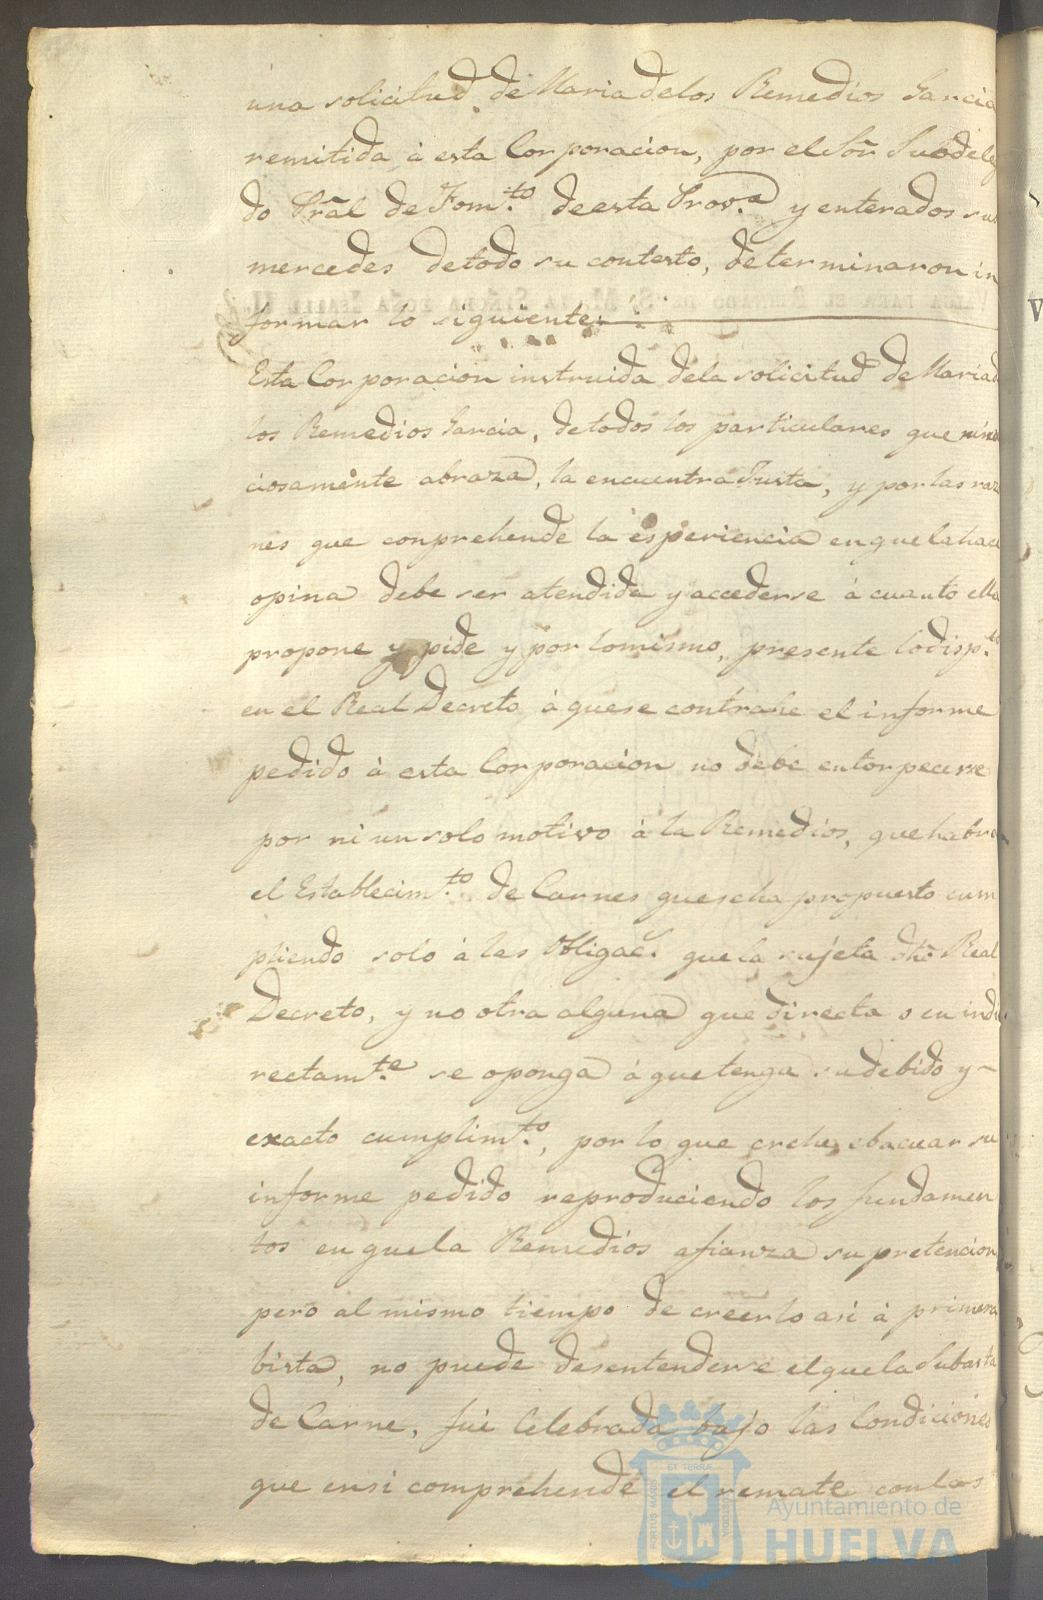 una solicitud de Maria de los Remedios Garcia
remitida à esta Corporacion, por el Sor. Subdelega
do Pral de Fom.to de esta Prov.a y enterados sus
mercedes de todo su contesto, determinaron in
formar lo siguiente:
Esta Corporacion instruida de la solicitud de Maria de
los Remedios Garcia, de todos los particulares que minu
ciosamente abraza, la encuentra Justa, y por las razo
nes que conprehende la esperiencia en que la hace
opina debe ser atendida y accederse à cuanto ella
propone y pide y por lo mismo, presente lo disp.to
en el Real Decreto à que se contrahe el informe
pedido à esta Corporacion no debe entorpecerse
por ni un solo motivo à la Remedios, que habra
el Establecim.to de Carnes que se ha propuesto cum
pliendo solo à las Obligac.s que la sujeta dho Real
Decreto, y no otra alguna que directa o en indi
rectam.te se oponga à que tenga su debido y
exacto cumplim.to, por lo que crehe ebacuar su
informe pedido reproduciendo los fundamen
tos en que la Remedios afianza su pretencion,
pero al mismo tiempo de creerlo asi à primera
bista, no puede desentenderse el que la Subasta
de Carne, fué Celebrada bajo las Condiciones
que en si comprehende el remate con las
Ayuntamiento de
HUELVA